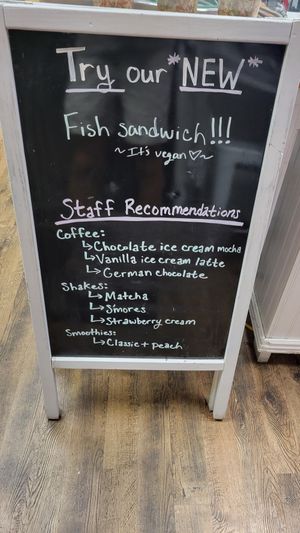 Try our *NEW*
Fish sandwich!!!
~It's vegan♡~
Staff Recommendations
Coffee:
↳Chocolate ice cream mocha
↳Vanilla ice cream latte
↳German chocolate
Shakes:
↳Matcha
↳S'mores
↳Strawberry cream
Smoothies:
↳Classic + peach